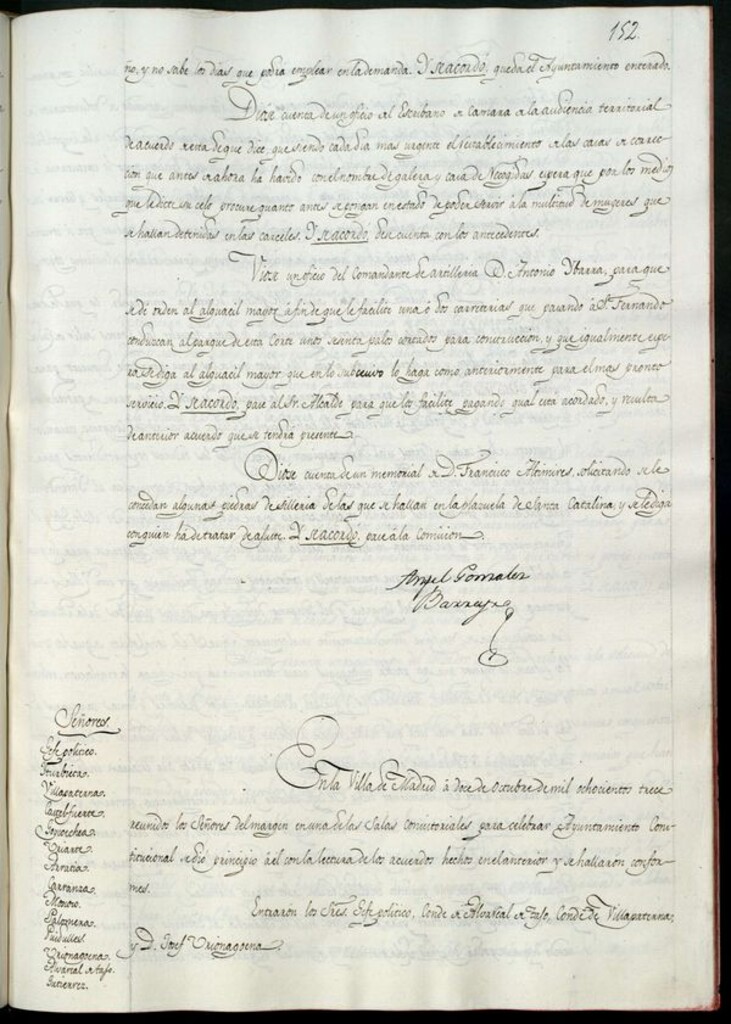 152.
ño, y no sabe los dias que podia emplear en la demanda. Y se acordó, queda el Ayuntamiento enterado.
Diose cuenta de un oficio del Escribano de Camara de la audiencia territorial
de acuerdo de esta en que dice, que siendo cada dia mas urgente el restablecimiento de las casas de correc-
cion que antes de ahora ha havido con el nombre de galera y casa de Recogidas, espera que por los medios
que le dicte su celo procure quanto antes se pongan en estado de poder servir á la multitud de mugeres que
se hallan detenidas en las carceles. Y se acordo, dese cuenta con los antecedentes.
Viose un oficio del Comandante de artilleria D. Antonio Ybarra, para que
se dé orden al alguacil mayor á fin de que le facilite una ó dos carreterias que pasando á Sn. Fernando
conduzcan al parque de esta Corte unos palos cortados para construccion, y que igualmente espe-
ra se diga al alguacil mayor que en lo subcesivo lo haga como anteriormente para el mas pronto
servicio. Y se acordo, pase al Sr. Alcalde para que los facilite pagando, qual está acordado, y resulta
de anterior acuerdo que se tendra presente.
Diose cuenta de un memorial de D. Francisco Altimires, solicitando se le
concedan algunas piedras de silleria de las que se hallan en la plazuela de Santa Catalina, y se le diga
con quien ha de tratar de ajuste. Y se acordó, pase á la comision.
Angel Gonzalez
Barreyro
Señores.
Gefe politico.
Yturbieta.
Villapaterna.
Castel-fuerte.
Goycoechea.
Uriarte.
Arratia.
Carranza.
Monoso.
Palomera.
Puidulles.
Urionagoena.
Alvarreal de Tajo.
Gutierrez.
En la Villa de Madrid á doce de Octubre de mil ochocientos trece
reunidos los Señores del margen en una de las Salas consistoriales para celebrar Ayuntamiento Cons-
titucional se dió principio á él con la lectura de los acuerdos hechos en el anterior y se hallaron confor-
mes.
Entraron los Sres. Gefe politico, Conde de Alvarreal de Tajo, Conde de Villapaterna,
y D. Josef Urionagoena.